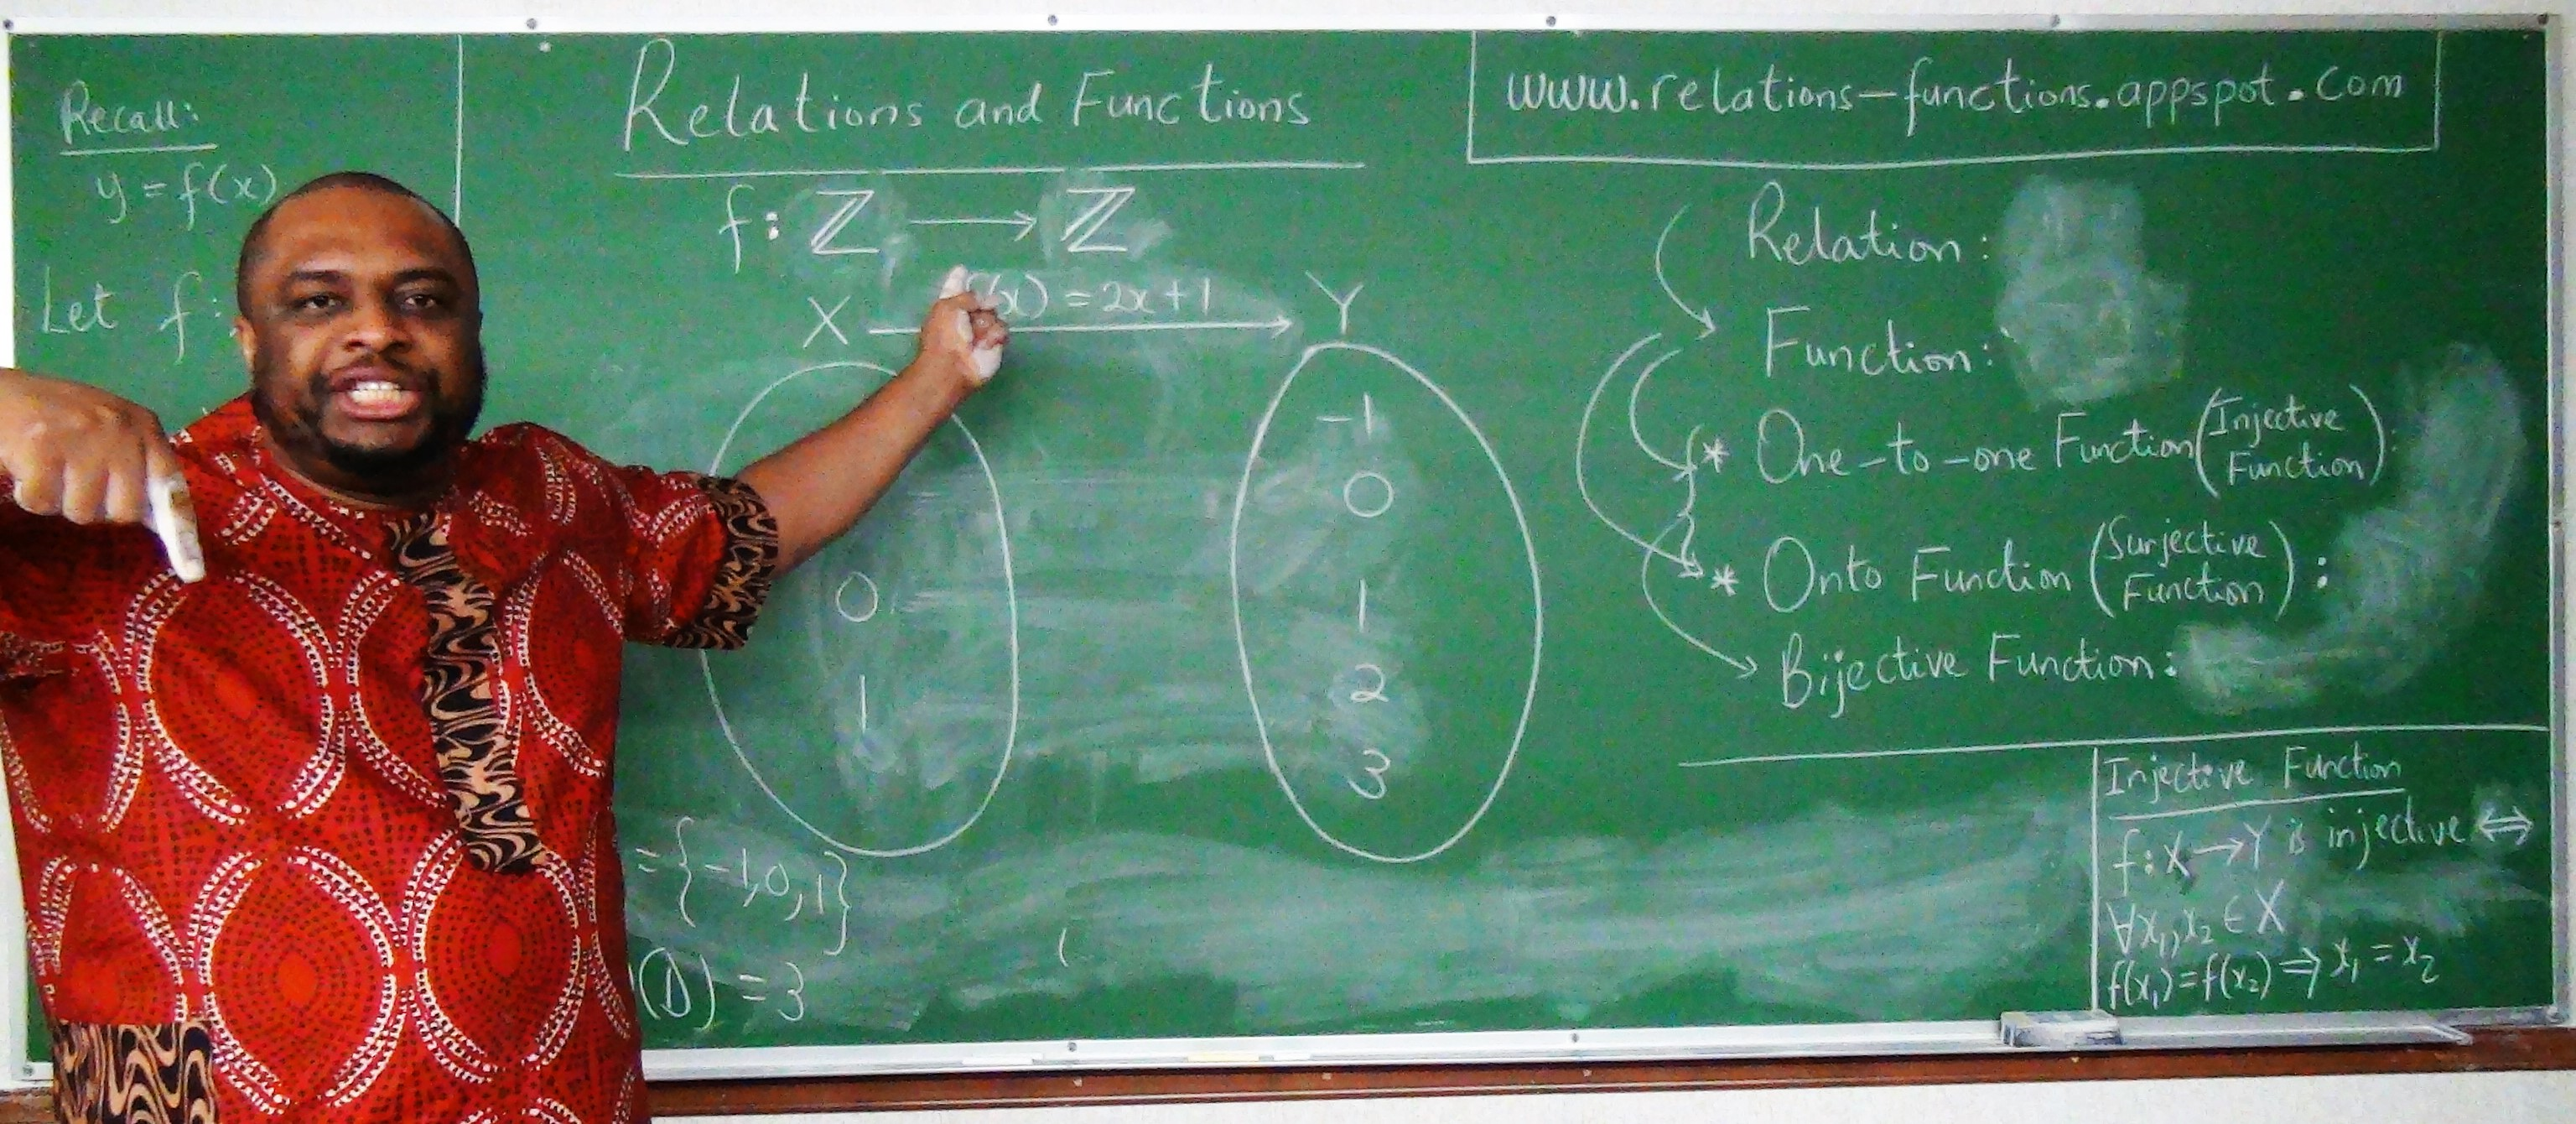 Recall:
y = f(x)
Let f:
Relations and Functions
f: ℤ ⟶ ℤ
X (x) = 2x+1 Y
0
1
-1
0
1
2
3
= {-1,0,1}
(1) = 3
(
www.relations-functions.appspot.com
Relation:
Function:
* One-to-one Function (Injective Function):
* Onto Function (Surjective Function):
Bijective Function:
Injective Function
f: X → Y is injective ⇔
∀x₁, x₂ ∈ X
f(x₁) = f(x₂) ⇒ x₁ = x₂